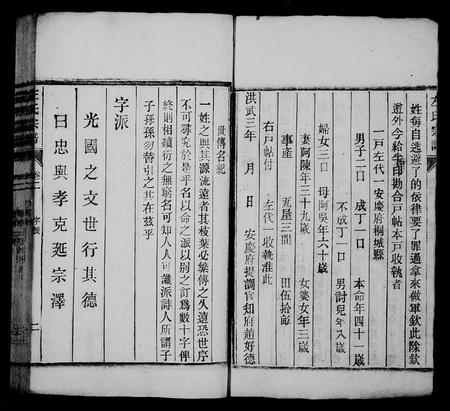 姓每自逃避了的依律要了罪過拿來做軍欽此除欽
遵外今給半印勘合戶帖本戶收執者
一戶左代一安慶府桐城縣
男子二口 成丁一口 本命年四十一歲
不成丁一口 男討兒年八歲
婦女三口 母阿吳年六十歲
妻阿陳年三十九歲 女婆女年三歲
事產 瓦屋三間 田伍拾畝
右戶帖付 左代一收執准此
洪武三年 月 日 安慶府提調官知府趙好德
世傳名紀
一姓之與其源流遠者其枝葉必繁傳之久遠恐世序
不可尋究於是乎名以命之派以別之訂爲數十字俾
終則相續衍之無窮名可知人人可識派詩人所謂子
子孫孫勿替引之其在茲乎
字派
光國之文世行其德
日忠與孝克延宗澤
左氏宗譜 卷一 字派